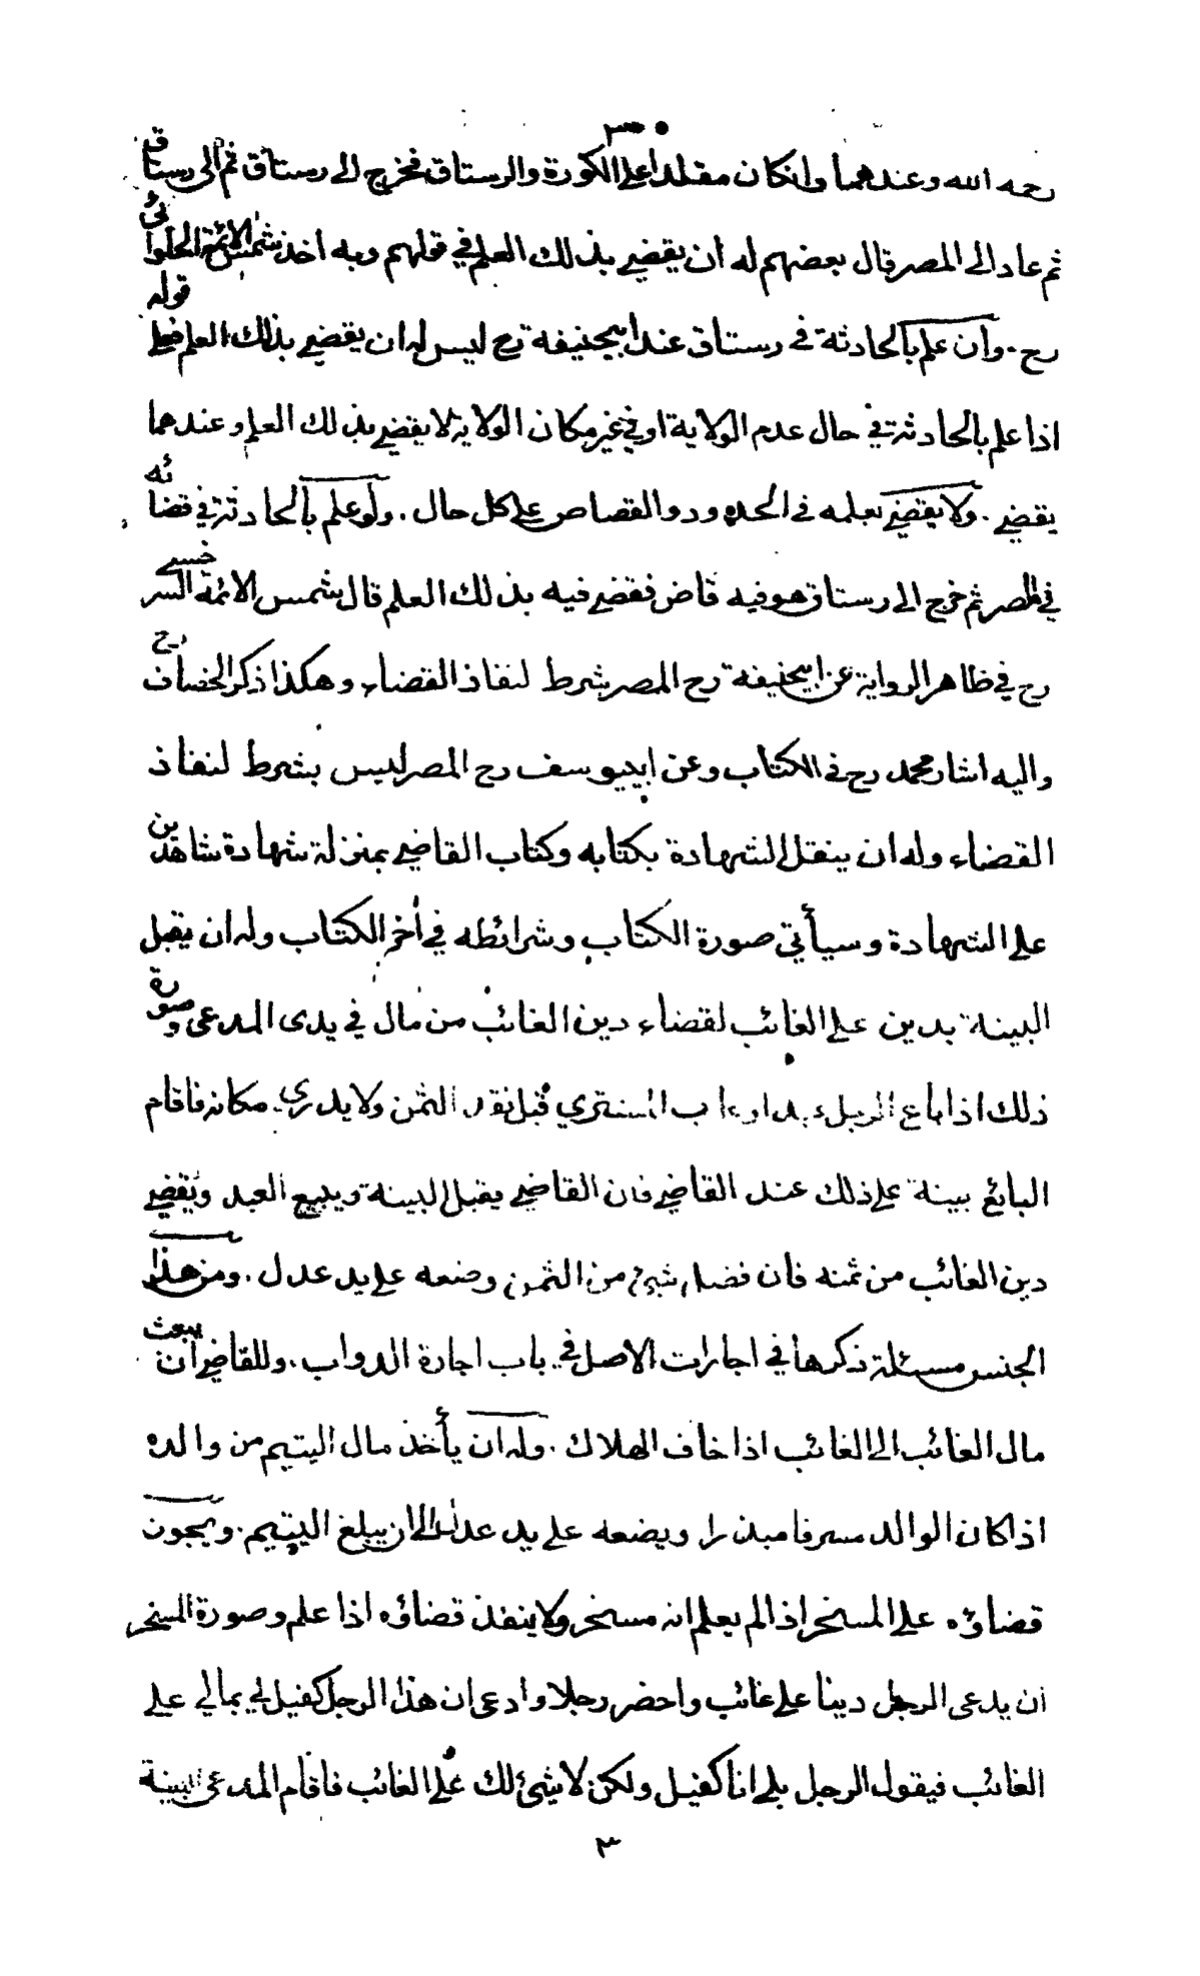 ٣٠
رحمه الله وعندهما وانكان مقلدا على الكورة والرستاق فخرج الى رستاق ثم الى رستاق
ثم عاد الى المصر قال بعضهم له ان يقضي بذلك العلم في قولهم وبه اخذ شمس الائمة الحلوائي
رح . وان علم بالحادثة في رستاق عند ابيحنيفة رح ليس له ان يقضي بذلك العلم فعلى قوله
اذا علم بالحادثة في حال عدم الولاية او في غير مكان الولاية لا يقضي بذلك العلم وعندهما
يقضي . ولا يقضي بعلمه في الحدود والقصاص على كل حال . ولو علم بالحادثة في قضائه
في المصر ثم خرج الى رستاق هو فيه قاض فقضى فيه بذلك العلم قال شمس الائمة السرخسي
رح في ظاهر الرواية عن ابيحنيفة رح المصر شرط لنفاذ القضاء وهكذا ذكر الخصاف رح
واليه اشار محمد رح في الكتاب وعن ابييوسف رح المصر ليس بشرط لنفاذ
القضاء وله ان ينقل الشهادة بكتابه وكتاب القاضي بمنزلة شهادة شاهدين
على الشهادة وسيأتي صورة الكتاب وشرائطه في أخر الكتاب وله ان يقبل
البينة بدين على الغائب لقضاء دين الغائب من مال في يدى المدعى وصورة
ذلك اذا باع الرجل عبدا وغاب المشتري قبل نقد الثمن ولا يدري مكانه فاقام
البائع بينة على ذلك عند القاضي فان القاضي يقبل البينة ويبيع العبد ويقضي
دين الغائب من ثمنه فان فضل شيئ من الثمن وضعه على يد عدل . ومن هذا
الجنس مسئلة ذكرها في اجارات الاصل في باب اجارة الدواب . وللقاضي ان يبعث
مال الغائب الى الغائب اذا خاف الهلاك . وله ان يأخذ مال اليتيم من والده
اذا كان الوالد مسرفا مبذرا ويضعه على يد عدل الى ان يبلغ اليتيم . ويجوز
قضاؤه على المسخر اذا لم يعلم انه مسخر ولا ينفذ قضاؤه اذا علم وصورة المسخر
ان يدعى الرجل دينا على غائب واحضر رجلا وادعى ان هذا الرجل كفيل لي بمالي على
الغائب فيقول الرجل بلى انا كفيل ولكن لا شيئ لك على الغائب فاقام المدعى البينة
٣